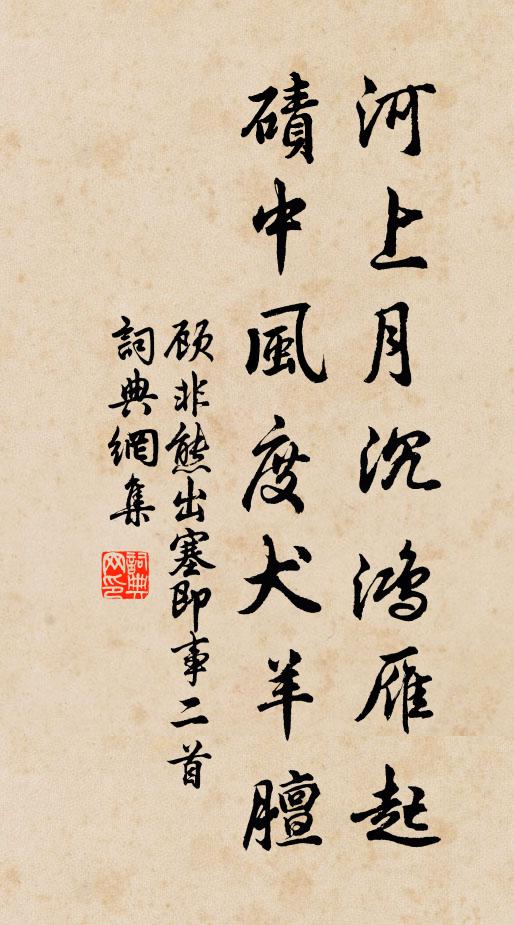 河上月沉鸿雁起
磧中風度犬羊膻
顾非熊出塞即事二首
詞典網集
詞典網印